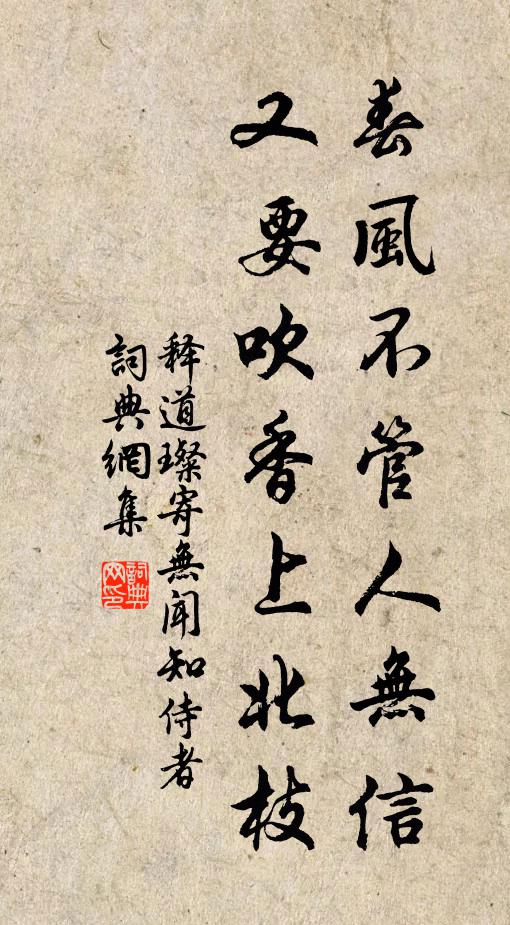 春風不管人無信
又要吹香上北枝
释道璨寄無聞知侍者
詞典網集
詞典网印